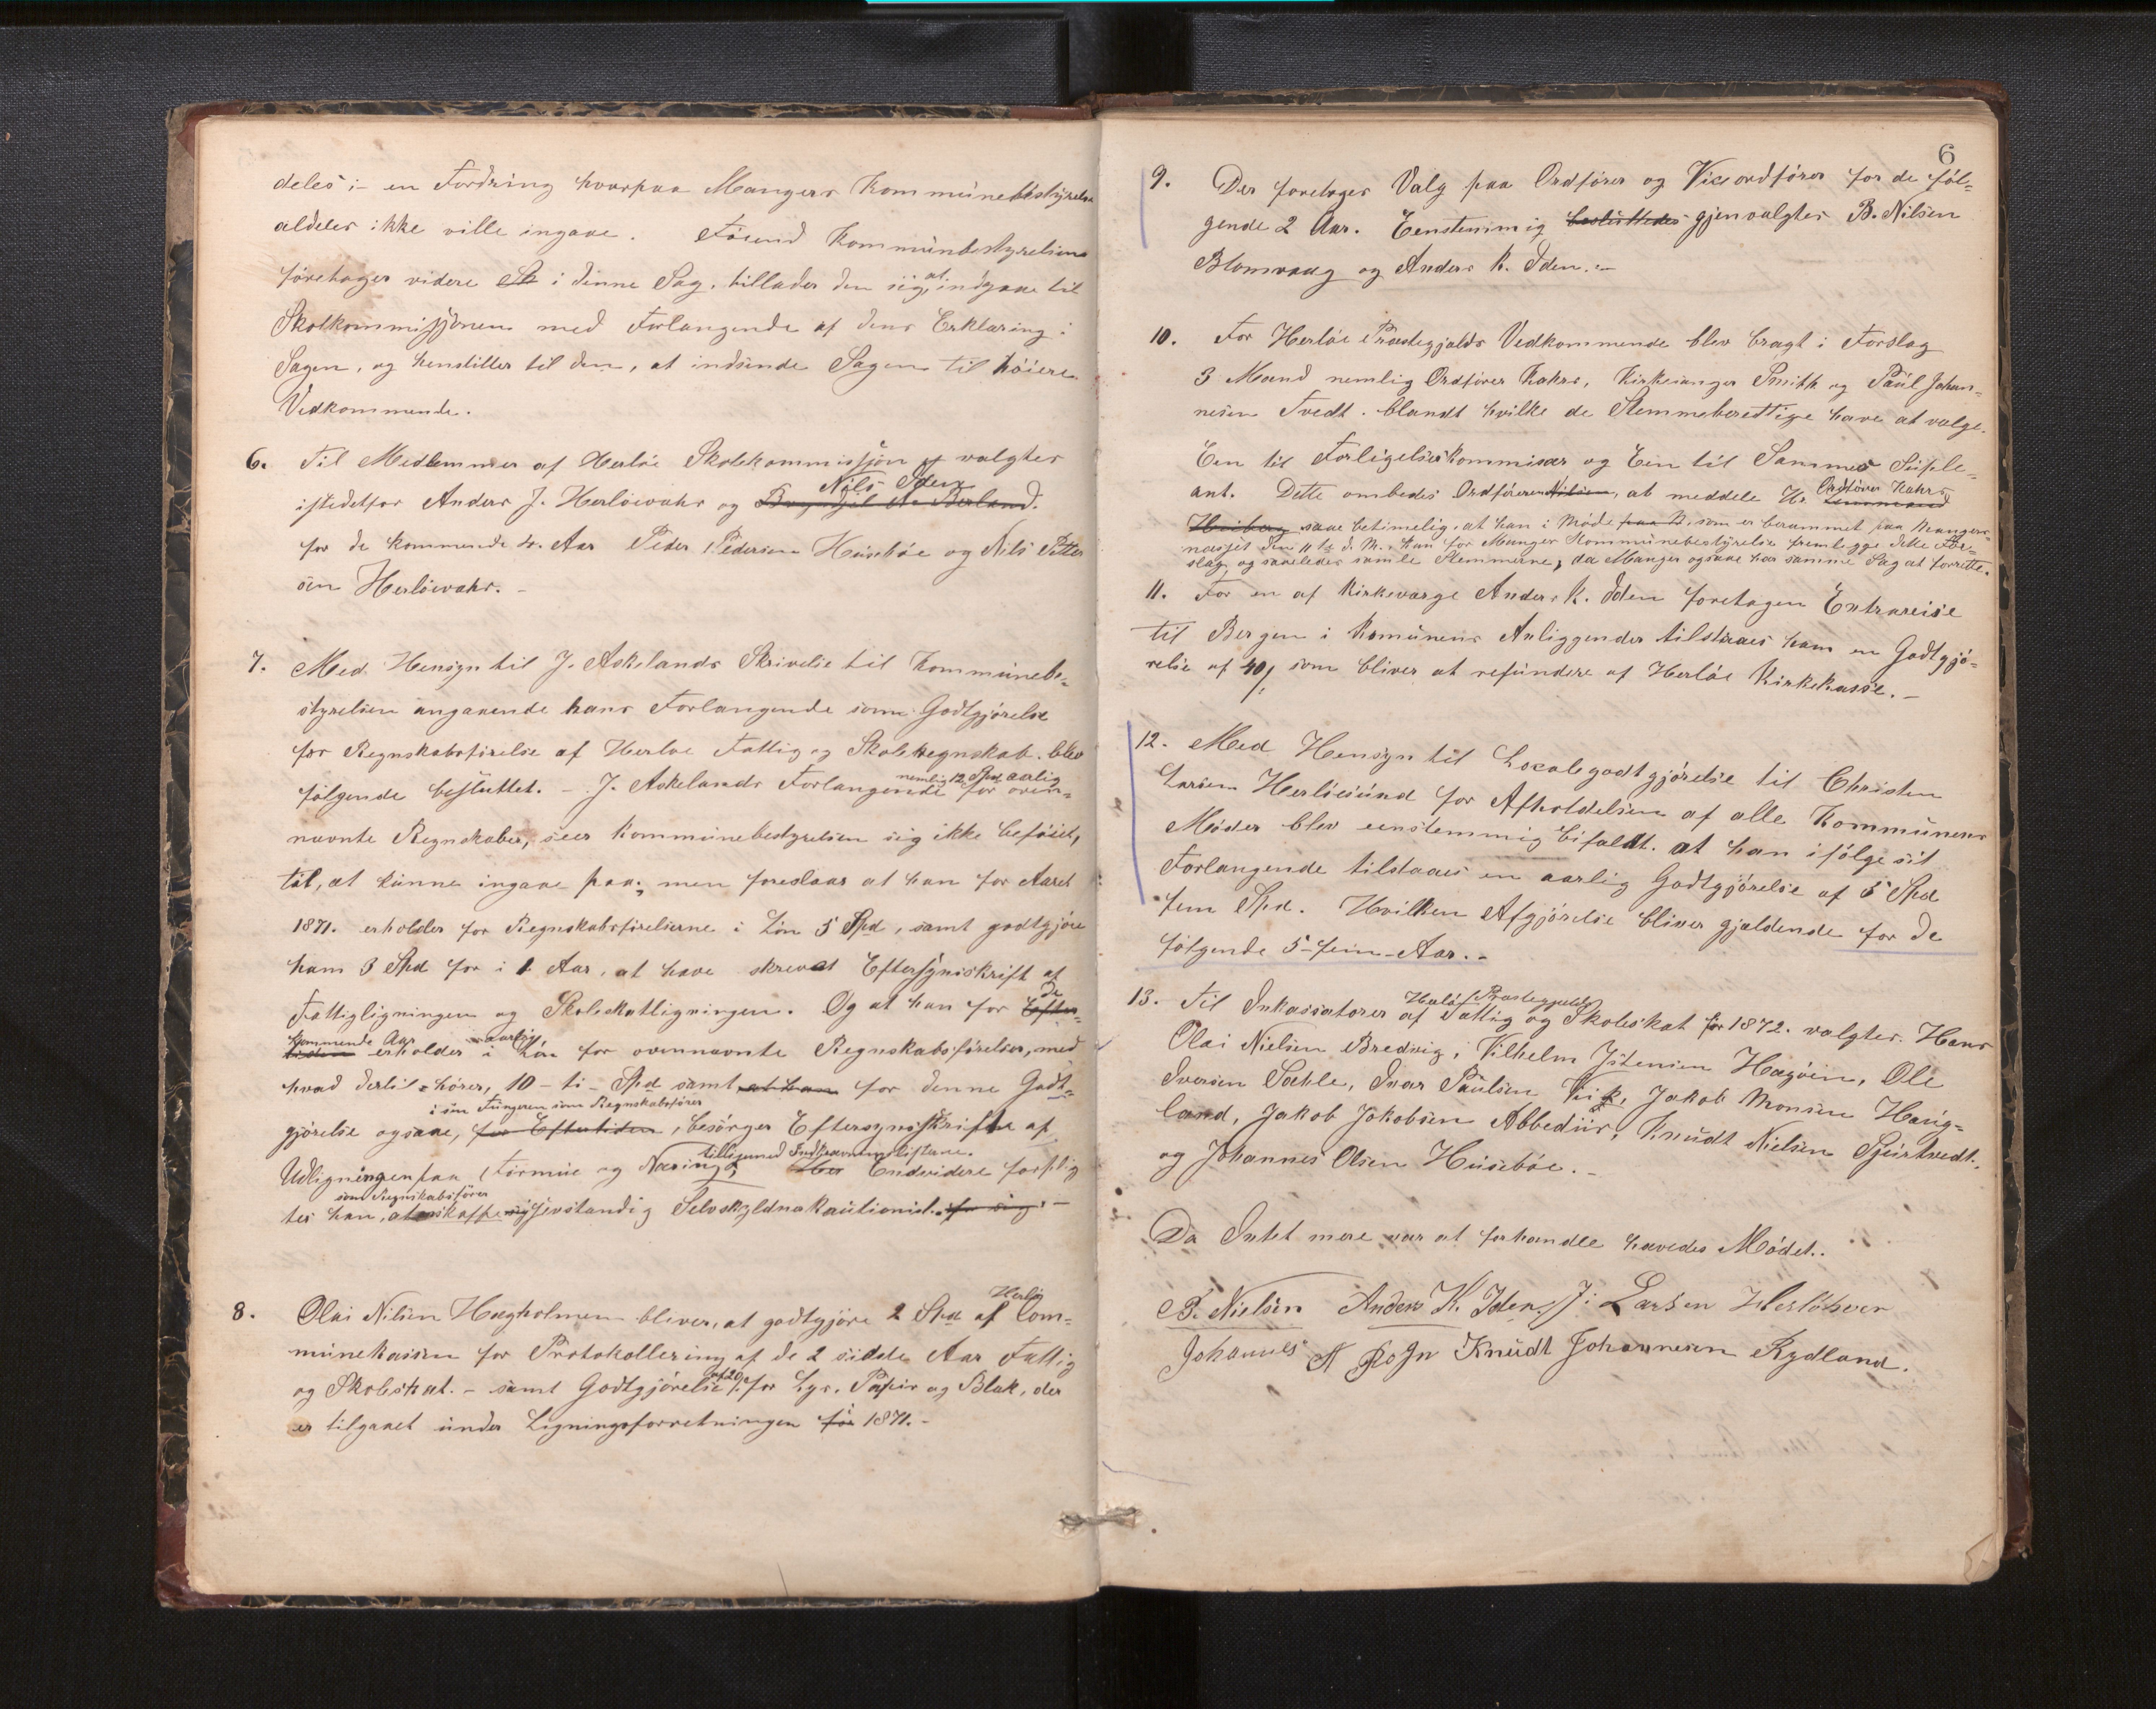 deles; - en Fordring hvorpaa Mangers Kommunebestyrelse
aldeles ikke ville ingaae. Førend Kommunbestyrelsens
foretager videre St i denne Sag, tillader den sig, at indgaae til
Skolkommissjonen med Forlangende af dens Erklæring i
Sagen, og henstiller til den, at indsende Sagen til høiere
Vedkommende.
6. Til Medlemmer af Herløe Skolekommissjon valgtes
istedetfor Anders J. Herløevahr og Nils Iden
for de kommende 4. Aar Peder Pedersen Husebøe og Nils Petter
sen Herløevahr. -
7. Med Hensyn til J. Askelands Skrivelse til Kommunebe-
styrelsen angaaende hans Forlangende som Godtgjørelse
for Regnskabsførelse af Herløe Fattig og Skoleregnskab. blev
følgende besluttet. - J. Askelands Forlangende nemlig 12 Spd aarlig for oven-
nævnte Regnskaber, seer Kommunebestyrelsen sig ikke beføiet,
til, at kunne ingaae paa; men foreslaar at han for Aaret
1871. erholder for Regnskabsførelserne i Løn 5 Spd, samt godtgjøre
ham 3 Spd for i 1 Aar, at have skrevet Eftersynsskrift af
Fattigligningen og Skoleskatligningen. Og at han for de Efter-
tiden kommende Aar erholder i aarlig Løn for ovennævnte Regnskabsførelser, med
hvad dertil hører, 10 - ti - Spd samt at han for denne Godt-
gjørelse ogsaae, for Eftertiden i sin Fungeren som Regnskabsfører, besørger Eftersynsskrifte af
Udligningen paa Formue og Næring, tilligemed Inddrivningslistene. Endvidere forplig
tes han, som Regnskabsfører at skaffe sig sevstændig Selvskyldnakautionist. for sig. -
8. Olai Nilsen Hægholmen bliver, at godtgjøre 2 Spd af Herlø Com-
munekassen for Protokollering af de 2 sidste Aar Fattig
og Skoleskat. - samt Godtgjørelse af 20 for Lys, Papir og Blæk, der
er tilgaaet under Ligningsforretningen for 1871. -
6
9. Der foretoges Valg paa Ordfører og Viceordfører for de føl-
gende 2 Aar. Eenstemmig besluttedes gjenvalgtes B. Nilsen
Blomvaag og Anders K. Iden. -
10. For Herløe Præstegjælds Vedkommende blev bragt i Forslag
3 Mænd nemlig Ordfører Kahrs, Kirkesanger Smith og Paul Johan-
nesen Tvedt. blandt hvilke de Stemmeberettige have at vælge.
Een til Forligelseskommisær og Een til Sammes Suple-
ant. Dette ombedes Ordføreren Nilsen, at meddele Hr Ordfører Kahrs
saae betimelig, at han i Møde, som er berammet paa Manger-
næsset den 11te d. M., kan for Manger Kommunebestyrelse fremlegge dette For-
slag og saaledes samle Stemmerne, da Manger ogsaae har samme Sag at forrette.
11. For en af Kirkeværge Anders K. Iden foretagen Extrareise
til Bergen i Komunens Anliggender tilstaaes ham en Godtgjø-
relse af 40 som bliver at refundere af Herløe Kirkekasse. -
12. Med Hensyn til Localegodtgjørelse til Christen
Larsen Herløesund for Afholdelsen af alle Kommunens
Møder blev eenstemmig bifaldt. at han ifølge sit
Forlangende tilstaaes en aarlig Godtgjørelse af 5 Spd
fem Spd. Hvilken Afgjørelse bliver gjældende for de
følgende 5 - fem - Aar. -
13. Til Inkassatorer af Herlø Præstegjælds Fattig og Skoleskat for 1872. valgtes. Hans
Olai Nielsen Bredvig, Vilhelm Jstensen Hægøen, Ole
Iversen Sæhle, Ivar Paulsen Vik, Jakob Monsen Haug-
land, Jakob Jakobsen Abbediir, Knudt Nielsen Spjørtvedt,
og Johannes Olsen Husebøe. -
Da Intet mere var at forhandle hævedes Mødet.
B. Nielsen Anders K. Iden, J: Larsen Herløhver
Johannes Knudt Johannesen Rydland.